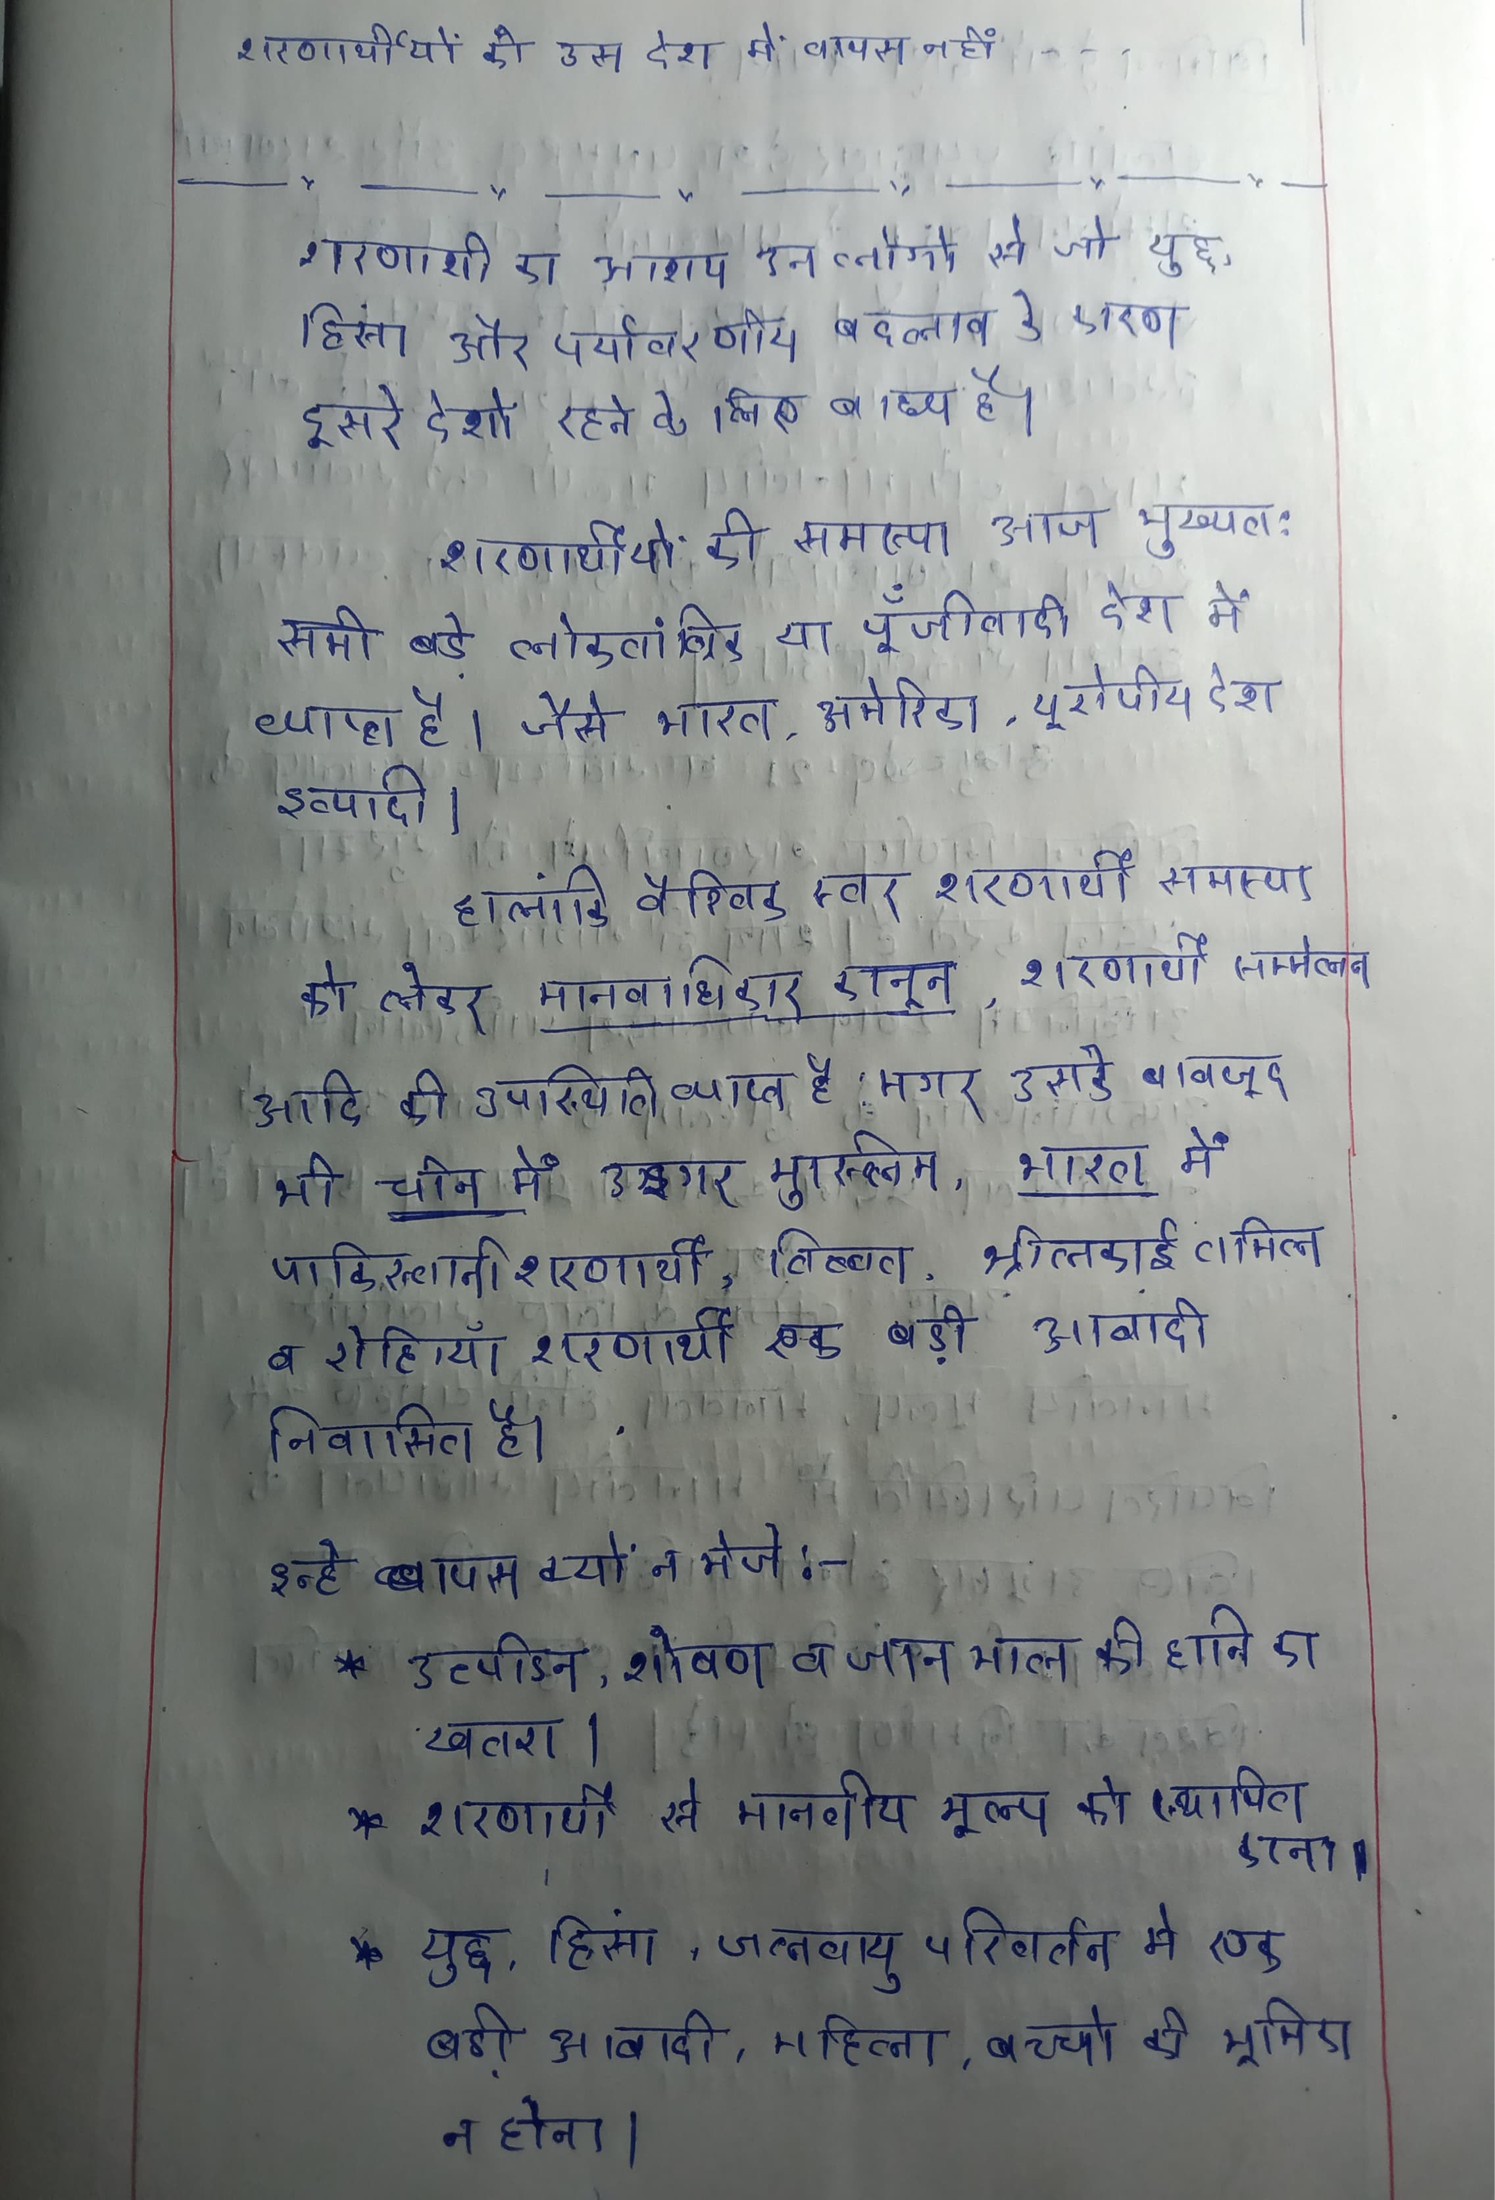 शरणार्थीयों को उस देश में वापस नहीं - - -
शरणार्थी का आशय उन लोगो से जो युद्ध,
हिंसा और पर्यावरणीय बदलाव के कारण
दूसरे देशों रहने के लिए बाध्य है।
शरणार्थीयों की समस्या आज मुख्यतः
सभी बड़े लोकतांत्रिक या पूँजीवादी देश में
व्याप्त है। जैसे भारत, अमेरिका, यूरोपीय देश
इत्यादी।
हालांकि वैश्विक स्तर शरणार्थी समस्या
को लेकर मानवाधिकार कानून, शरणार्थी सम्मेलन
आदि की उपस्थिति व्याप्त है मगर उसके बावजूद
भी चीन में उइगर मुस्लिम, भारत में
पाकिस्तानी शरणार्थी, तिब्बत, श्रीलकाई तामिल
व रोहिंयाँ शरणार्थी एक बड़ी आबादी
निवासित है।
इन्हे वापस क्यों न भेजे :-
* उत्पीडन, शोषण व जान माल की हानि का
खतरा।
* शरणार्थी से मानवीय मूल्य को स्थापित
करना।
* युद्ध, हिंसा, जलवायु परिवर्तन मे एक
बड़ी आबादी, महिला, बच्चो की भूमिका
न होना।